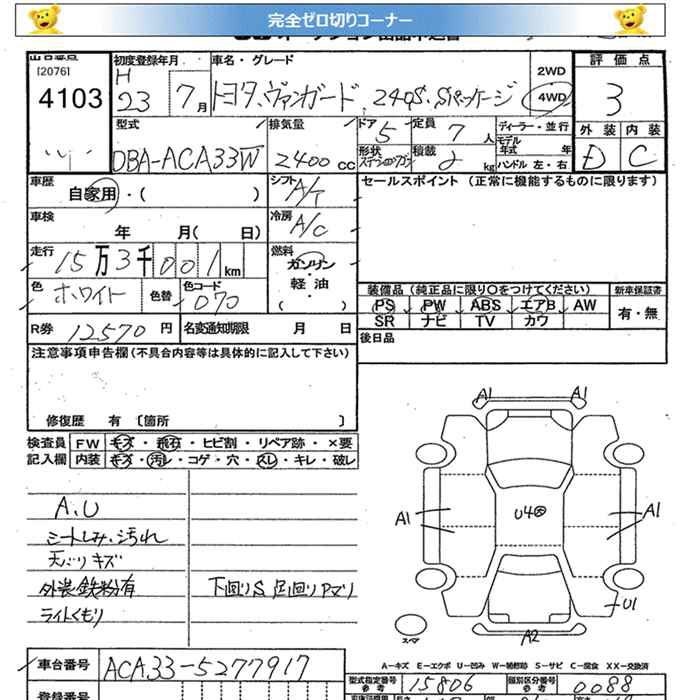 完全ゼロ切りコーナー
[2076]
4103
初度登録年月
H
23 7月
車名・グレード
トヨタ、ヴァンガード、240S、Sパッケージ
2WD
4WD
評価点
3
外装 内装
D C
型式
DBA-ACA33W
排気量
2400 cc
ドア 5
定員 7 人
形状
ステーションワゴン
積載 kg
ディーラー・並行
モデル年式 年
ハンドル 左・右
車歴
自家用・( )
シフト A/T
セールスポイント (正常に機能するものに限ります)
車検
年 月( 日)
冷房 A/C
走行
15万3千001km
燃料
ガソリン
・
軽・油
・
( )
色 ホワイト 色替
色コード 070
装備品 (純正品に限り〇をつけてください)
新車保証書
PS PW ABS エアB AW
SR ナビ TV カワ
有・無
R券 12570 円
名変通知期限 月 日
後日品
注意事項申告欄(不具合内容等は具体的に記入して下さい)
修復歴 有 〔箇所 〕
検査員
記入欄
FW キズ・飛石・ヒビ割・リペア跡・×要
内装 キズ・汚レ・コゲ・穴・スレ・キレ・破レ
A1 A1
A.U
シートしみ、汚れ
天バリキズ
外装鉄粉有
ライトくもり
下回りS 足回りアマリ
A1
U4
A1
U1
A2
スペア
A-キズ E-エクボ U-凹み W-補修跡 S-サビ C-腐食 XX-交換済
車台番号 ACA33-5277917
型式指定番号
参考
15806
類別区分番号
参考
0088
登録番号